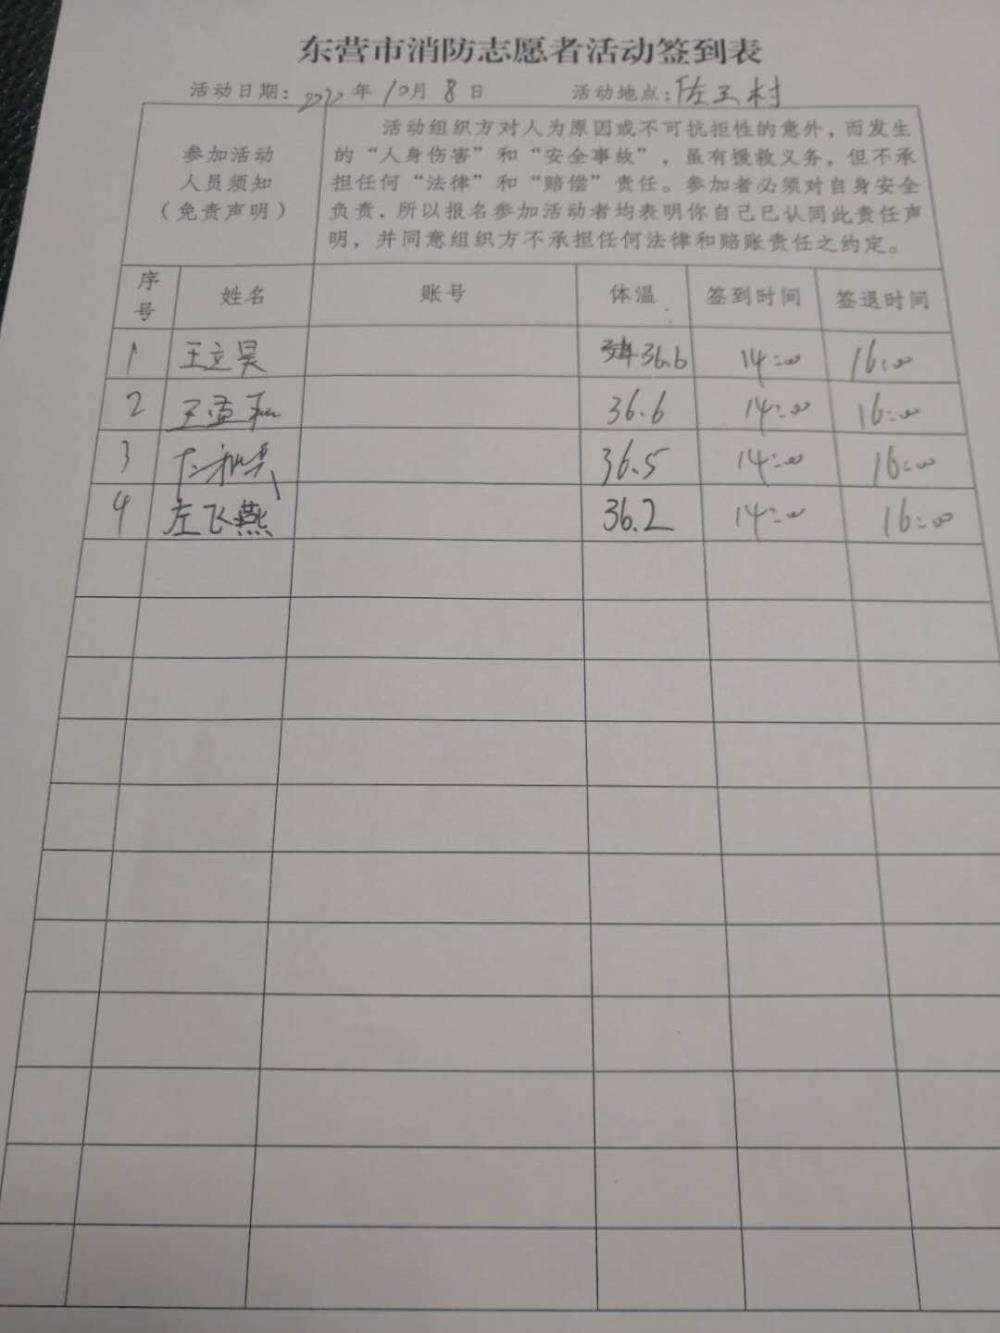 东营市消防志愿者活动签到表
活动日期: 2020 年 10月 8 日 活动地点: 王村
参加活动
人员须知
(免责声明)
活动组织方对人为原因或不可抗拒性的意外,而发生
的“人身伤害”和“安全事故”,虽有援救义务,但不承
担任何“法律”和“赔偿”责任。参加者必须对自身安全
负责,所以报名参加活动者均表明你自己已认同此责任声
明,并同意组织方不承担任何法律和赔账责任之约定。
序号 姓名 账号 体温 签到时间 签退时间
1 王立昊 36.6 14:00 16:00
2 36.6 14:00 16:00
3 36.5 14:00 16:00
4 左飞燕 36.2 14:00 16:00